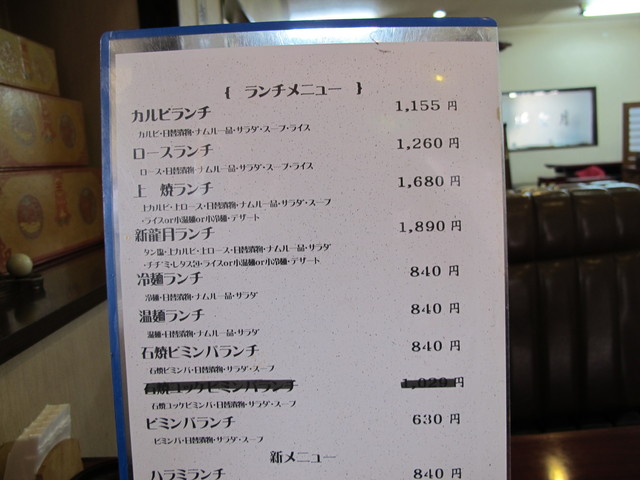 { ランチメニュー }
カルビランチ 1,155 円
カルビ・日替漬物・ナムル一品・サラダ・スープ・ライス
ロースランチ 1,260 円
ロース・日替漬物・ナムル一品・サラダ・スープ・ライス
上 焼ランチ 1,680 円
上カルビ・上ロース・日替漬物・ナムル一品・サラダ・スープ
・ライスor小温麺or小冷麺・デザート
新龍月ランチ 1,890 円
タン塩・上カルビ・上ロース・日替漬物・ナムル一品・サラダ
・チヂミ・レタス・ライスor小温麺or小冷麺・デザート
冷麺ランチ 840 円
冷麺・日替漬物・ナムル一品・サラダ
温麺ランチ 840 円
温麺・日替漬物・ナムル一品・サラダ
石焼ビミンバランチ 840 円
石焼ビミンバ・日替漬物・サラダ・スープ
石焼ユッケビミンバランチ 1,029 円
石焼ユッケビミンバ・日替漬物・サラダ・スープ
ビミンバランチ 630 円
ビミンバ・日替漬物・サラダ・スープ
新メニュー
ハラミランチ 840 円